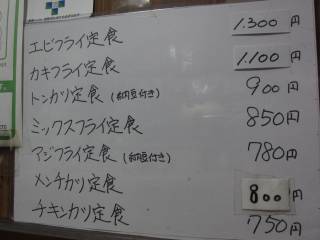 エビフライ定食 1.300円
カキフライ定食 1.100円
トンカツ定食 (納豆付き) 900円
ミックスフライ定食 850円
アジフライ定食 (納豆付き) 780円
メンチカツ定食 800円
チキンカツ定食 750円